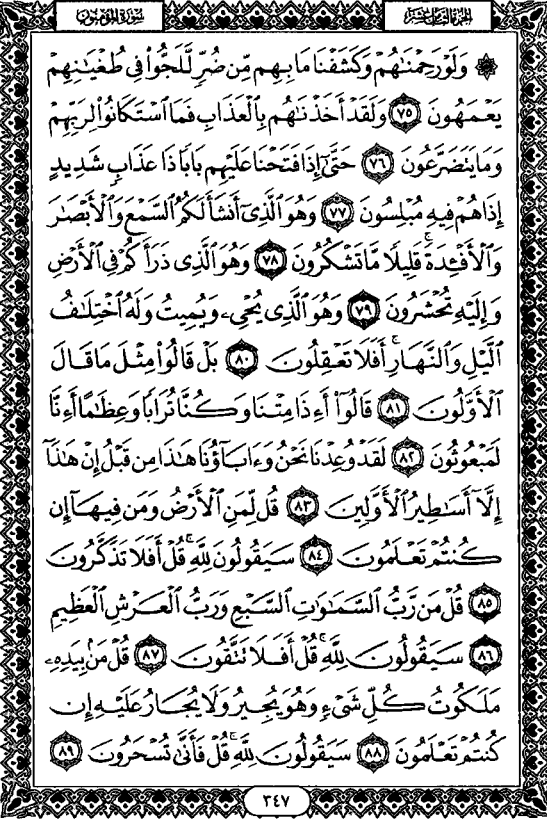 الجزء الثامن عشر
سورة المؤمنون
۞ وَلَوْ رَحِمْنَٰهُمْ وَكَشَفْنَا مَا بِهِم مِّن ضُرٍّ لَّلَجُّوا۟ فِى طُغْيَٰنِهِمْ
يَعْمَهُونَ ٧٥ وَلَقَدْ أَخَذْنَٰهُم بِٱلْعَذَابِ فَمَا ٱسْتَكَانُوا۟ لِرَبِّهِمْ
وَمَا يَتَضَرَّعُونَ ٧٦ حَتَّىٰٓ إِذَا فَتَحْنَا عَلَيْهِم بَابًا ذَا عَذَابٍ شَدِيدٍ
إِذَا هُمْ فِيهِ مُبْلِسُونَ ٧٧ وَهُوَ ٱلَّذِىٓ أَنشَأَ لَكُمُ ٱلسَّمْعَ وَٱلْأَبْصَٰرَ
وَٱلْأَفْـِٔدَةَ ۚ قَلِيلًا مَّا تَشْكُرُونَ ٧٨ وَهُوَ ٱلَّذِى ذَرَأَكُمْ فِى ٱلْأَرْضِ
وَإِلَيْهِ تُحْشَرُونَ ٧٩ وَهُوَ ٱلَّذِى يُحْىِۦ وَيُمِيتُ وَلَهُ ٱخْتِلَٰفُ
ٱلَّيْلِ وَٱلنَّهَارِ ۚ أَفَلَا تَعْقِلُونَ ٨٠ بَلْ قَالُوا۟ مِثْلَ مَا قَالَ
ٱلْأَوَّلُونَ ٨١ قَالُوٓا۟ أَءِذَا مِتْنَا وَكُنَّا تُرَابًا وَعِظَٰمًا أَءِنَّا
لَمَبْعُوثُونَ ٨٢ لَقَدْ وُعِدْنَا نَحْنُ وَءَابَآؤُنَا هَٰذَا مِن قَبْلُ إِنْ هَٰذَآ
إِلَّآ أَسَٰطِيرُ ٱلْأَوَّلِينَ ٨٣ قُل لِّمَنِ ٱلْأَرْضُ وَمَن فِيهَآ إِن
كُنتُمْ تَعْلَمُونَ ٨٤ سَيَقُولُونَ لِلَّهِ ۚ قُلْ أَفَلَا تَذَكَّرُونَ
٨٥ قُلْ مَن رَّبُّ ٱلسَّمَٰوَٰتِ ٱلسَّبْعِ وَرَبُّ ٱلْعَرْشِ ٱلْعَظِيمِ
٨٦ سَيَقُولُونَ لِلَّهِ ۚ قُلْ أَفَلَا تَتَّقُونَ ٨٧ قُلْ مَنۢ بِيَدِهِۦ
مَلَكُوتُ كُلِّ شَىْءٍ وَهُوَ يُجِيرُ وَلَا يُجَارُ عَلَيْهِ إِن
كُنتُمْ تَعْلَمُونَ ٨٨ سَيَقُولُونَ لِلَّهِ ۚ قُلْ فَأَنَّىٰ تُسْحَرُونَ ٨٩
٣٤٧